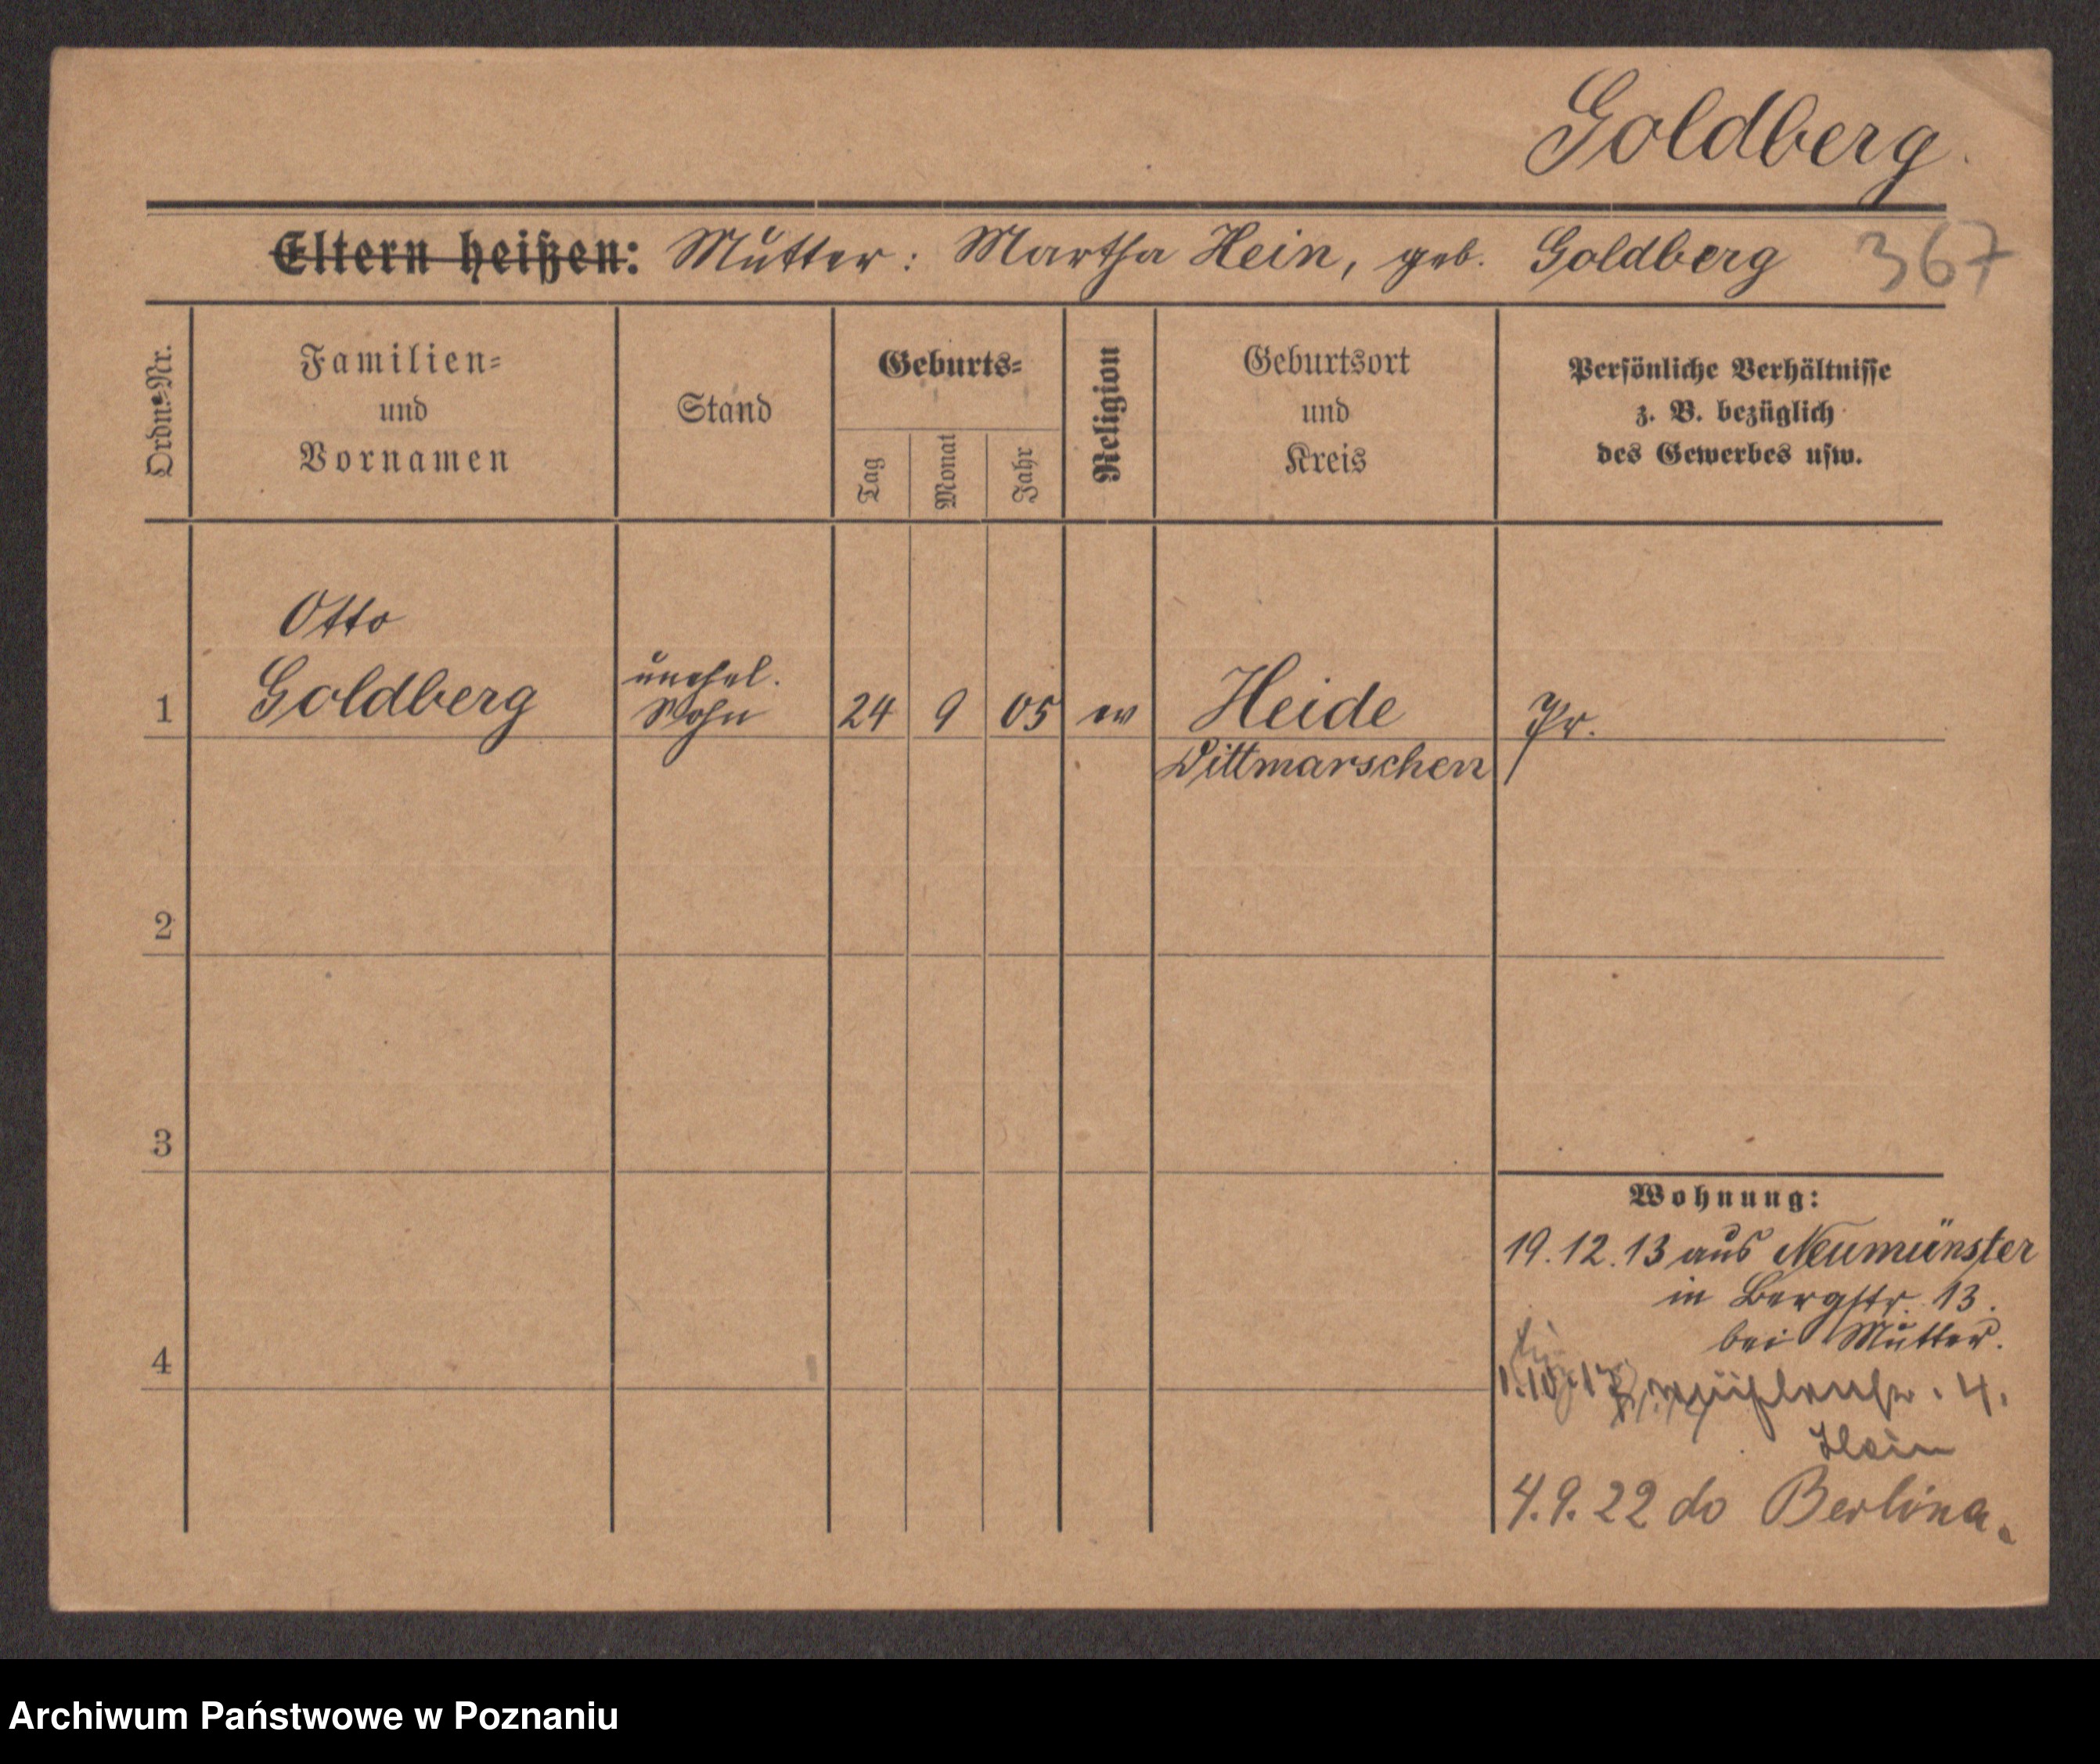 Goldberg.
Eltern heißen: Mutter: Martha Hein, geb. Goldberg 367
Ordn.-Nr.
Familien-
und
Vornamen
Stand
Geburts-
Tag
Monat
Jahr
Religion
Geburtsort
und
Kreis
Persönliche Verhältnisse
z. B. bezüglich
des Gewerbes usw.
Otto
1 Goldberg unehel. Sohn 24 9 05 ev Heide Pr.
Dittmarschen
2
3
4
Wohnung:
19.12.13 aus Neumünster
in Bergstr. 13.
bei Mutter.
1.10.17 Mühlenstr. 4.
Hein
4.9.22 do Berlina.
Archiwum Państwowe w Poznaniu